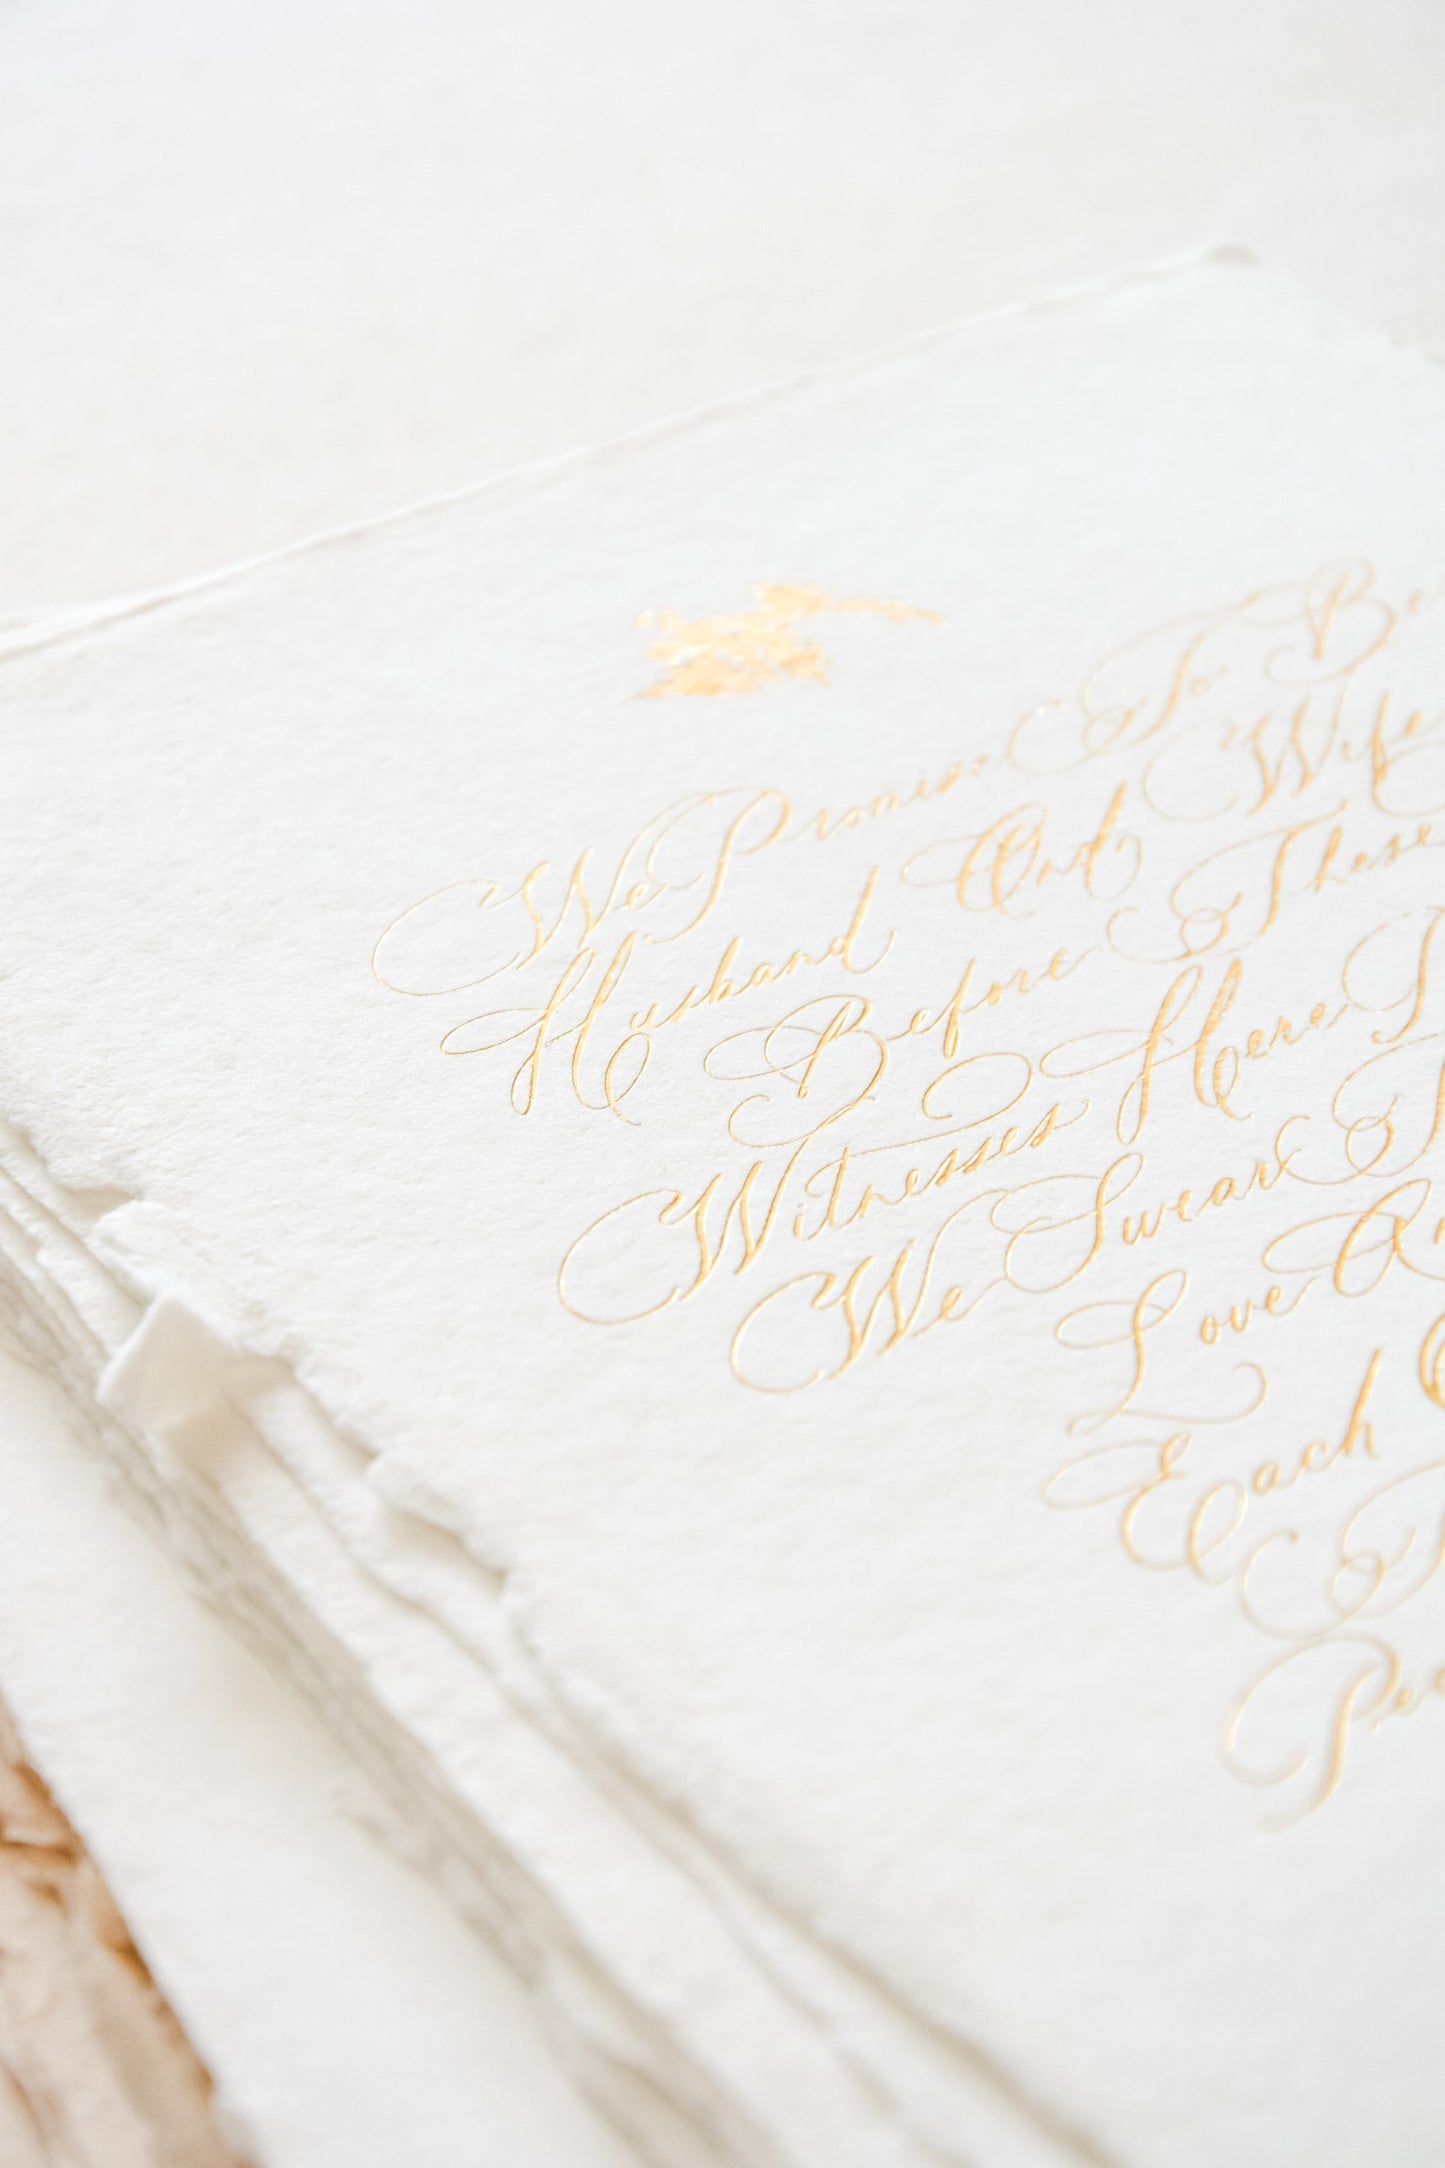 We Promise To Be
Husband And Wife
Before These
Witnesses Here
We Swear
Love
Each